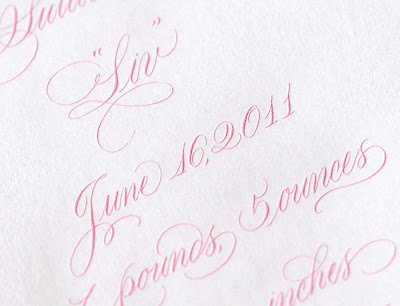 "Siv"
June 16, 2011
pounds, 5 ounces
inches